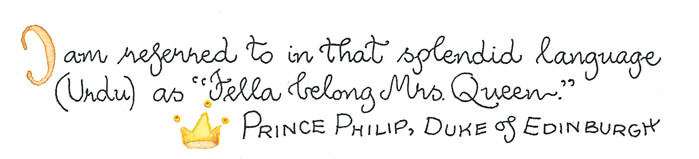 I am referred to in that splendid language
(Urdu) as “Fella belong Mrs. Queen.”
PRINCE PHILIP, DUKE of EDINBURGH